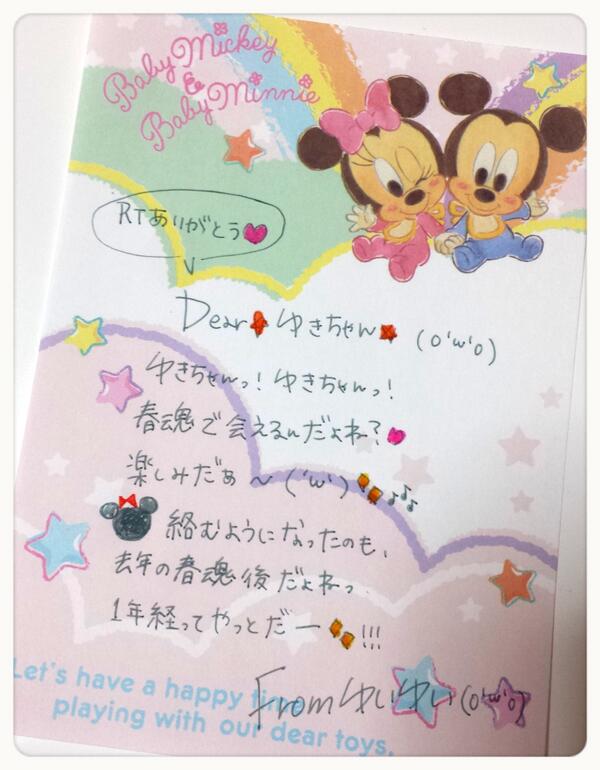 Baby Mickey
&
Baby Minnie
RTありがとう
Dear ゆきちゃん (o'w'o)
ゆきちゃんっ! ゆきちゃんっ!
春魂で会えるんだよね?
楽しみだぁ〜 ('w') ♪♪♪
絡むようになったのも、
去年の春魂後だよねっ
1年経ってやっとだー !!!
From ゆいゆい (o'w'o)
Let's have a happy time
playing with our dear toys.